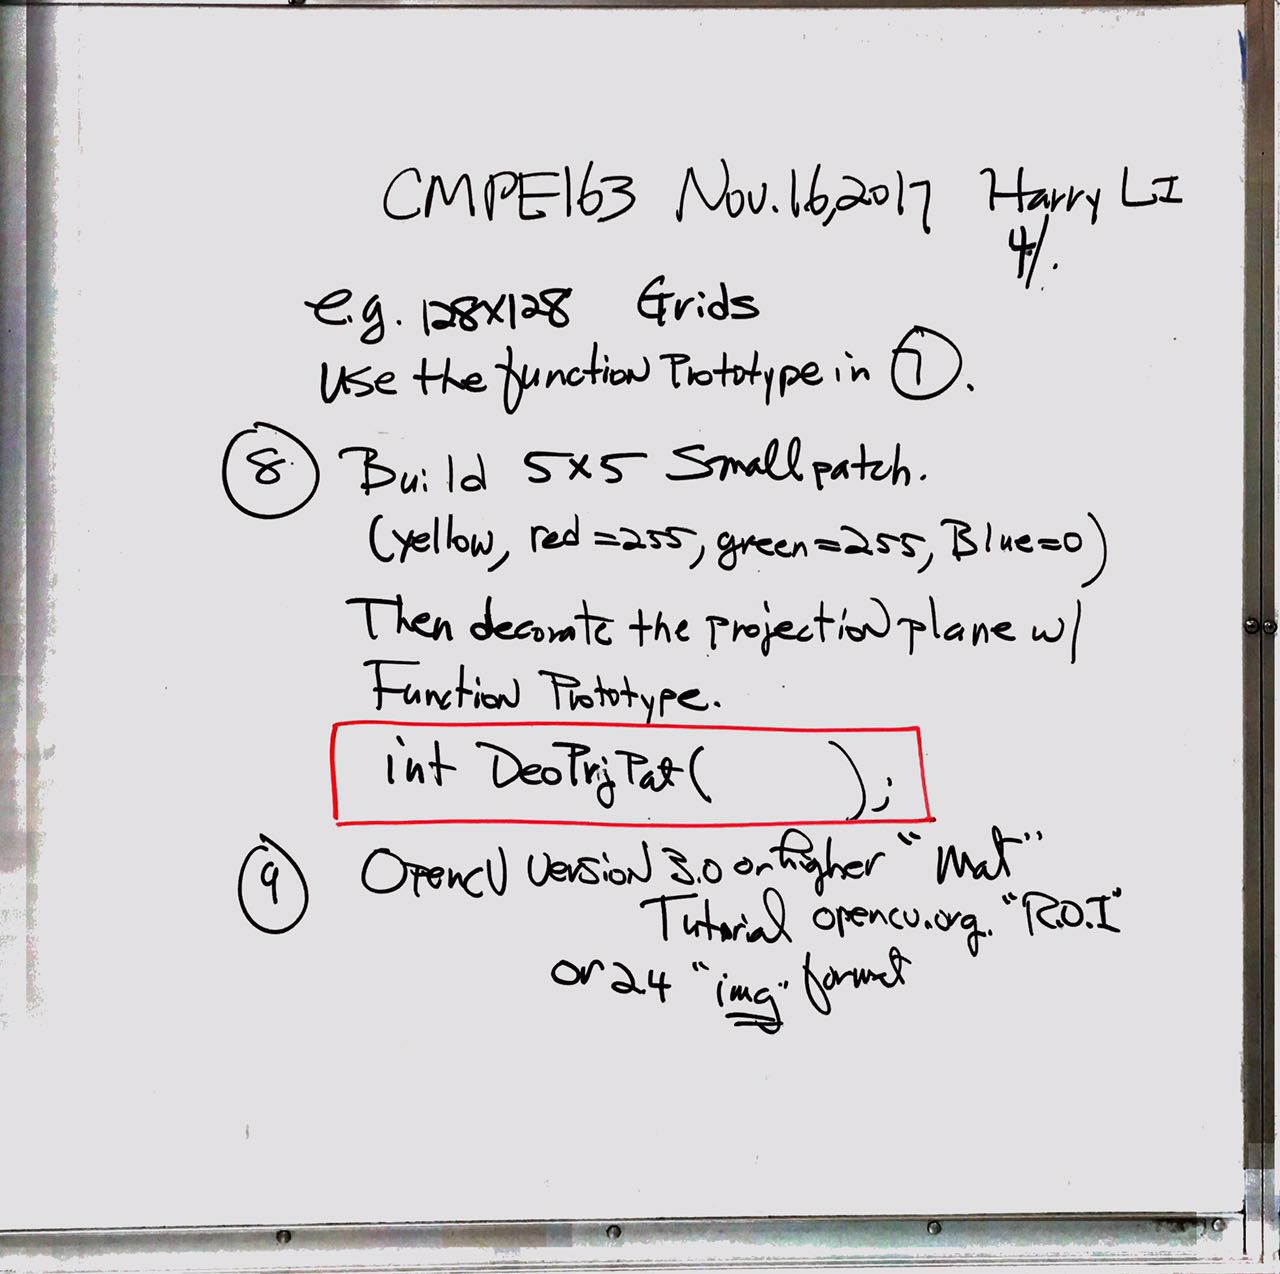 CMPE163 Nov.16,2017 Harry LI
4/.
e.g. 128x128 Grids
Use the function Prototype in ⑦.
⑧ Build 5x5 Small patch.
(yellow, red=255, green=255, Blue=0)
Then decorate the projection plane w/
Function Prototype.
int DeoPrjPat( );
⑨ OpenCV Version 3.0 or higher "Mat"
Tutorial opencv.org. "R.O.I"
or 2.4 "img" format